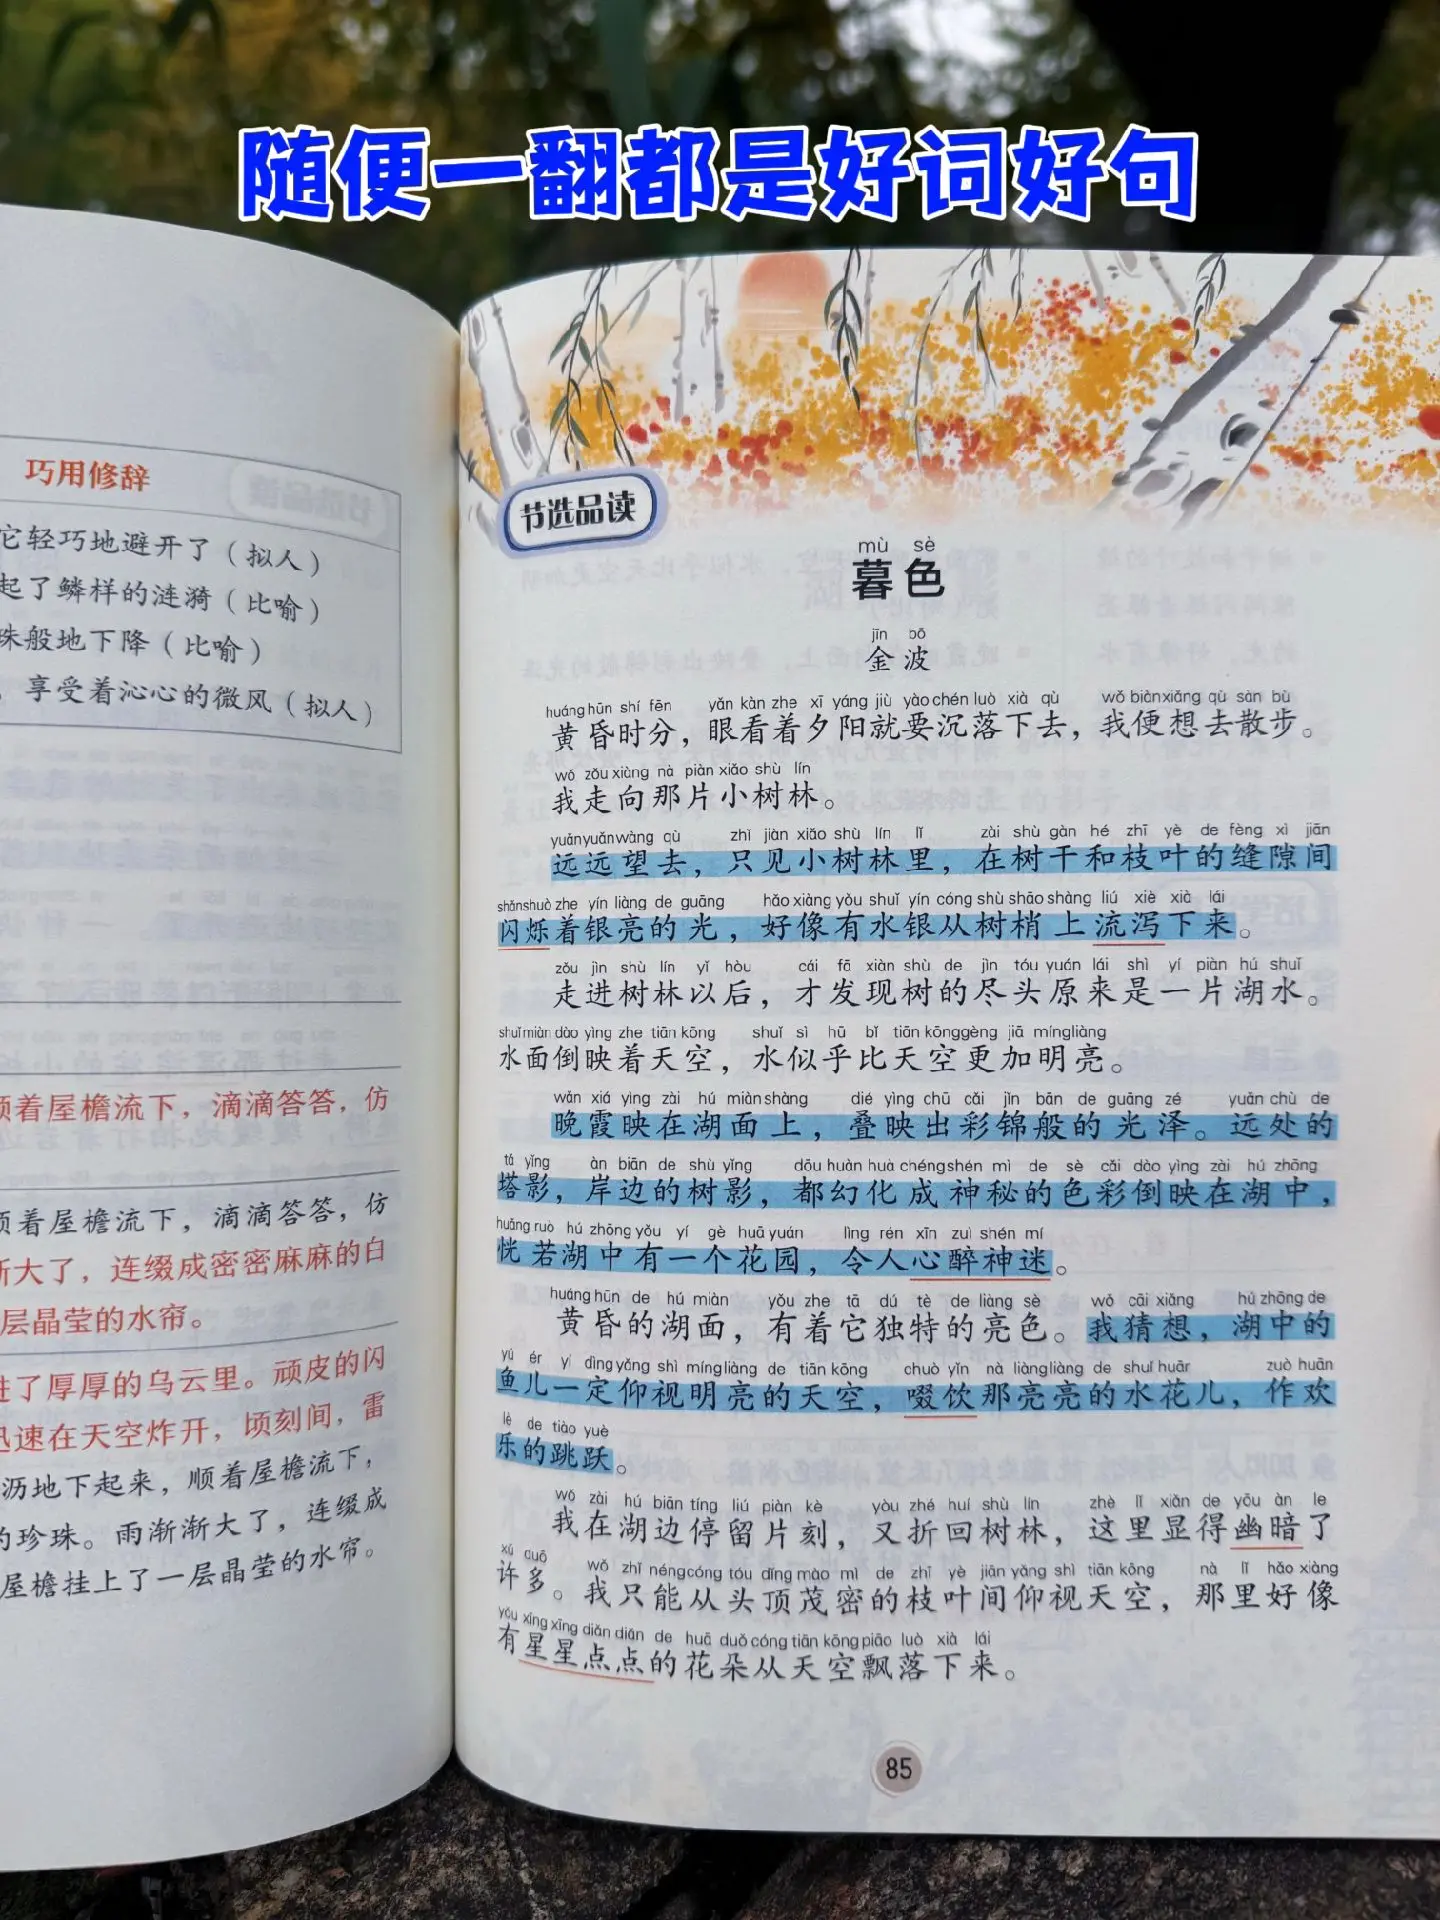 随便一翻都是好词好句
巧用修辞
它轻巧地避开了（拟人）
起了鳞样的涟漪（比喻）
珠般地下降（比喻）
，享受着沁心的微风（拟人）
顺着屋檐流下，滴滴答答，仿
顺着屋檐流下，滴滴答答，仿
渐大了，连缀成密密麻麻的白
层晶莹的水帘。
进了厚厚的乌云里。顽皮的闪
迅速在天空炸开，顷刻间，雷
沥地下起来，顺着屋檐流下，
的珍珠。雨渐渐大了，连缀成
屋檐挂上了一层晶莹的水帘。
节选品读
mù sè
暮色
jīn bō
金波
huánghūn shí fēn yǎn kàn zhe xī yáng jiù yào chén luò xià qù wǒ biàn xiǎng qù sàn bù
黄昏时分，眼看着夕阳就要沉落下去，我便想去散步。
wǒ zǒu xiàng nà piàn xiǎo shù lín
我走向那片小树林。
yuǎnyuǎnwàng qù zhǐ jiàn xiǎo shù lín lǐ zài shù gàn hé zhī yè de fèng xì jiān
远远望去，只见小树林里，在树干和枝叶的缝隙间
shǎnshuò zhe yín liàng de guāng hǎo xiàng yǒu shuǐ yín cóng shù shāo shàng liú xiè xià lái
闪烁着银亮的光，好像有水银从树梢上流泻下来。
zǒu jìn shù lín yǐ hòu cái fā xiàn shù de jìn tóu yuán lái shì yí piàn hú shuǐ
走进树林以后，才发现树的尽头原来是一片湖水。
shuǐ miàn dào yìng zhe tiān kōng shuǐ sì hū bǐ tiān kōng gèng jiā míngliàng
水面倒映着天空，水似乎比天空更加明亮。
wǎn xiá yìng zài hú miàn shàng dié yìng chū cǎi jǐn bān de guāng zé yuǎn chù de
晚霞映在湖面上，叠映出彩锦般的光泽。远处的
tǎ yǐng àn biān de shù yǐng dōu huàn huà chéng shén mì de sè cǎi dào yìng zài hú zhōng
塔影，岸边的树影，都幻化成神秘的色彩倒映在湖中，
huǎng ruò hú zhōng yǒu yí gè huā yuán lìng rén xīn zuì shén mí
恍若湖中有一个花园，令人心醉神迷。
huánghūn de hú miàn yǒu zhe tā dú tè de liàng sè wǒ cāi xiǎng hú zhōng de
黄昏的湖面，有着它独特的亮色。我猜想，湖中的
yú ér yí dìng yǎng shì míngliàng de tiān kōng chuò yǐn nà liàngliàng de shuǐ huār zuò huān
鱼儿一定仰视明亮的天空，啜饮那亮亮的水花儿，作欢
lè de tiào yuè
乐的跳跃。
wǒ zài hú biān tíng liú piàn kè yòu zhé huí shù lín zhè lǐ xiǎn de yōu àn le
我在湖边停留片刻，又折回树林，这里显得幽暗了
xǔ duō wǒ zhǐ néng cóng tóu dǐng mào mì de zhī yè jiān yǎng shì tiān kōng nà lǐ hǎo xiàng
许多。我只能从头顶茂密的枝叶间仰视天空，那里好像
yǒu xīng xīng diǎn diǎn de huā duǒ cóng tiān kōng piāo luò xià lái
有星星点点的花朵从天空飘落下来。
85